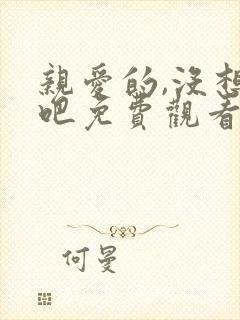 親愛的,沒想
吧免費觀看
何曼